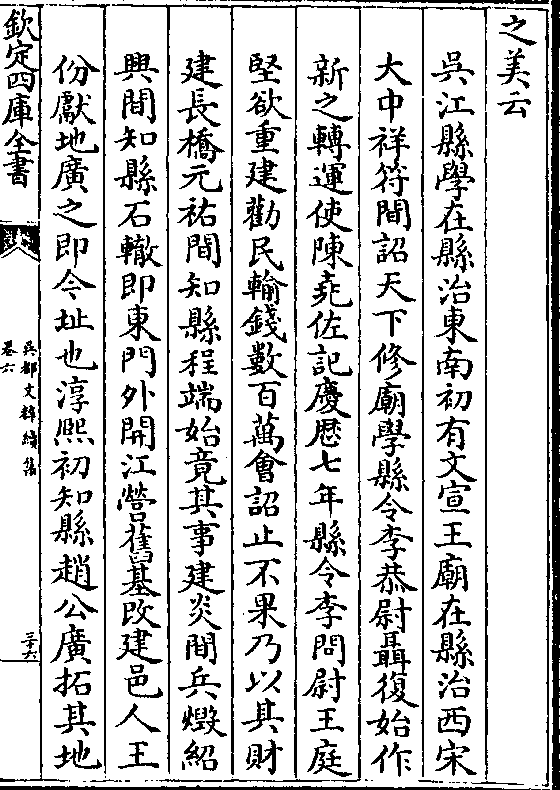 之美云
吳江縣學在縣治東南初有文宣王廟在縣治西宋
大中祥符間詔天下修廟學縣令李恭尉聶復始作
新之轉運使陳堯佐記慶厯七年縣令李問尉王庭
堅欲重建勸民輸錢數百萬會詔止不果乃以其財
建長橋元祐間知縣程端始竟其事建炎間兵燬紹
興間知縣石轍即東門外開江營舊基改建邑人王
份獻地廣之即今址也淳熙初知縣趙公廣拓其地
欽定四庫全書
吳都文粹續集
卷六
三十六